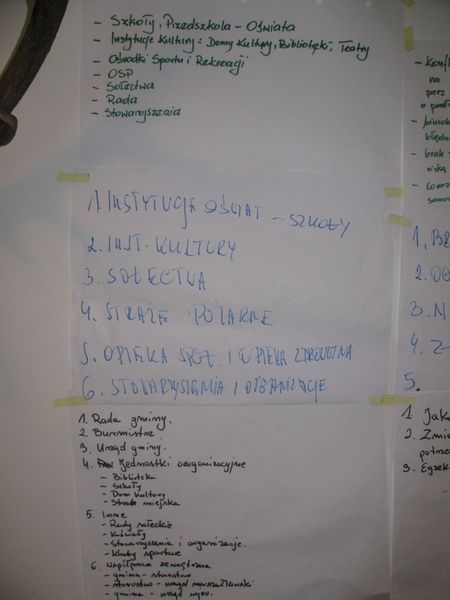 - Szkoły, Przedszkola - Oświata
- Instytucje Kultury: Domy Kultury, Biblioteki, Teatry
- Ośrodki Sportu i Rekreacji
- OSP
- Sołectwa
- Rada
- Stowarzyszenia
1. INSTYTUCJE OŚWIAT. - SZKOŁY
2. INST. KULTURY
3. SOŁECTWA
4. STRAŻE POŻARNE
5. OPIEKA SPOŁ. I OPIEKA ZDROWOTNA
6. STOWARZYSZENIA I ORGANIZACJE
1. Rada gminy.
2. Burmistrz
3. Urząd gminy.
4. Jednostki organizacyjne
- Biblioteka
- Szkoły
- Dom Kultury
- Straż miejska
5. Inne
- Rady sołeckie
- Kościoły
- Stowarzyszenia i organizacje.
- kluby sportowe
6. Współpraca zewnętrzna
- gmina - starostwo
- starostwo - urząd marszałkowski
- gmina - urząd woj.
- konfl
na
przez
- brak
1. BE
2.
3. N
4. Z
5.
1. Jak
2. Zmi
potrze
3. Egzek